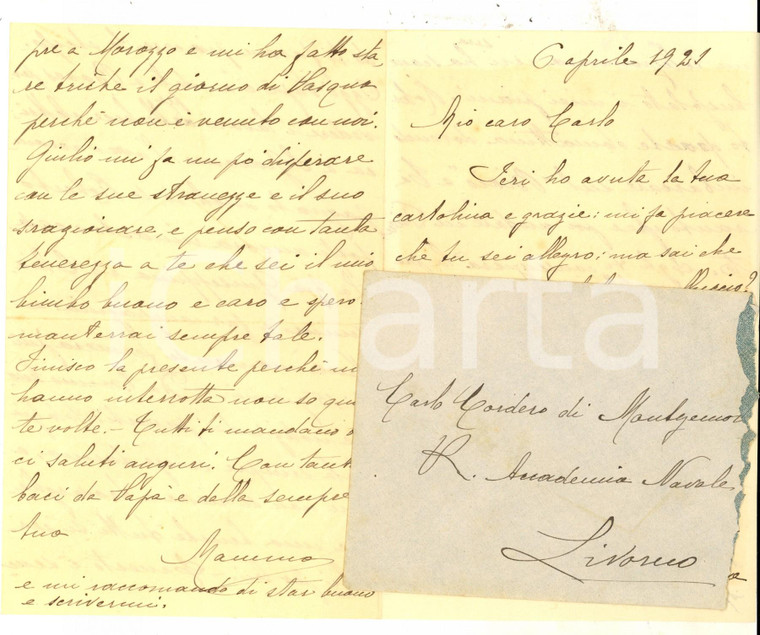 6 aprile 1921
Mio caro Carlo
Ieri ho avuta la tua
cartolina e grazie: mi fa piacere
che tu sei allegro; ma sai che
pre a Morozzo e mi ha fatto sta
re triste il giorno di Pasqua
perché non è venuto con noi.
Giulio mi fa un pò disperare
con le sue stranezze e il suo
sragionare, e penso con tanta
tenerezza a te che sei il mio
bimbo buono e caro e spero
manterrai sempre tale.
Finisco la presente perché m
hanno interrotta non so qua
te volte. - Tutti ti mandano
ci saluti auguri. Con tant
baci da Papà e dalla sempre
tua
Mamma
e mi raccomando di star buono
e scrivermi.
Carlo Cordero di Montezemolo
R. Accademia Navale
Livorno
iCharta